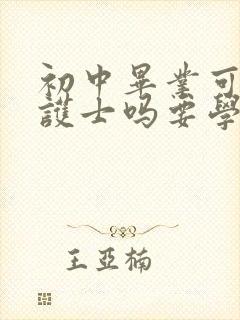 初中畢業可
護士吗要學
王亞楠